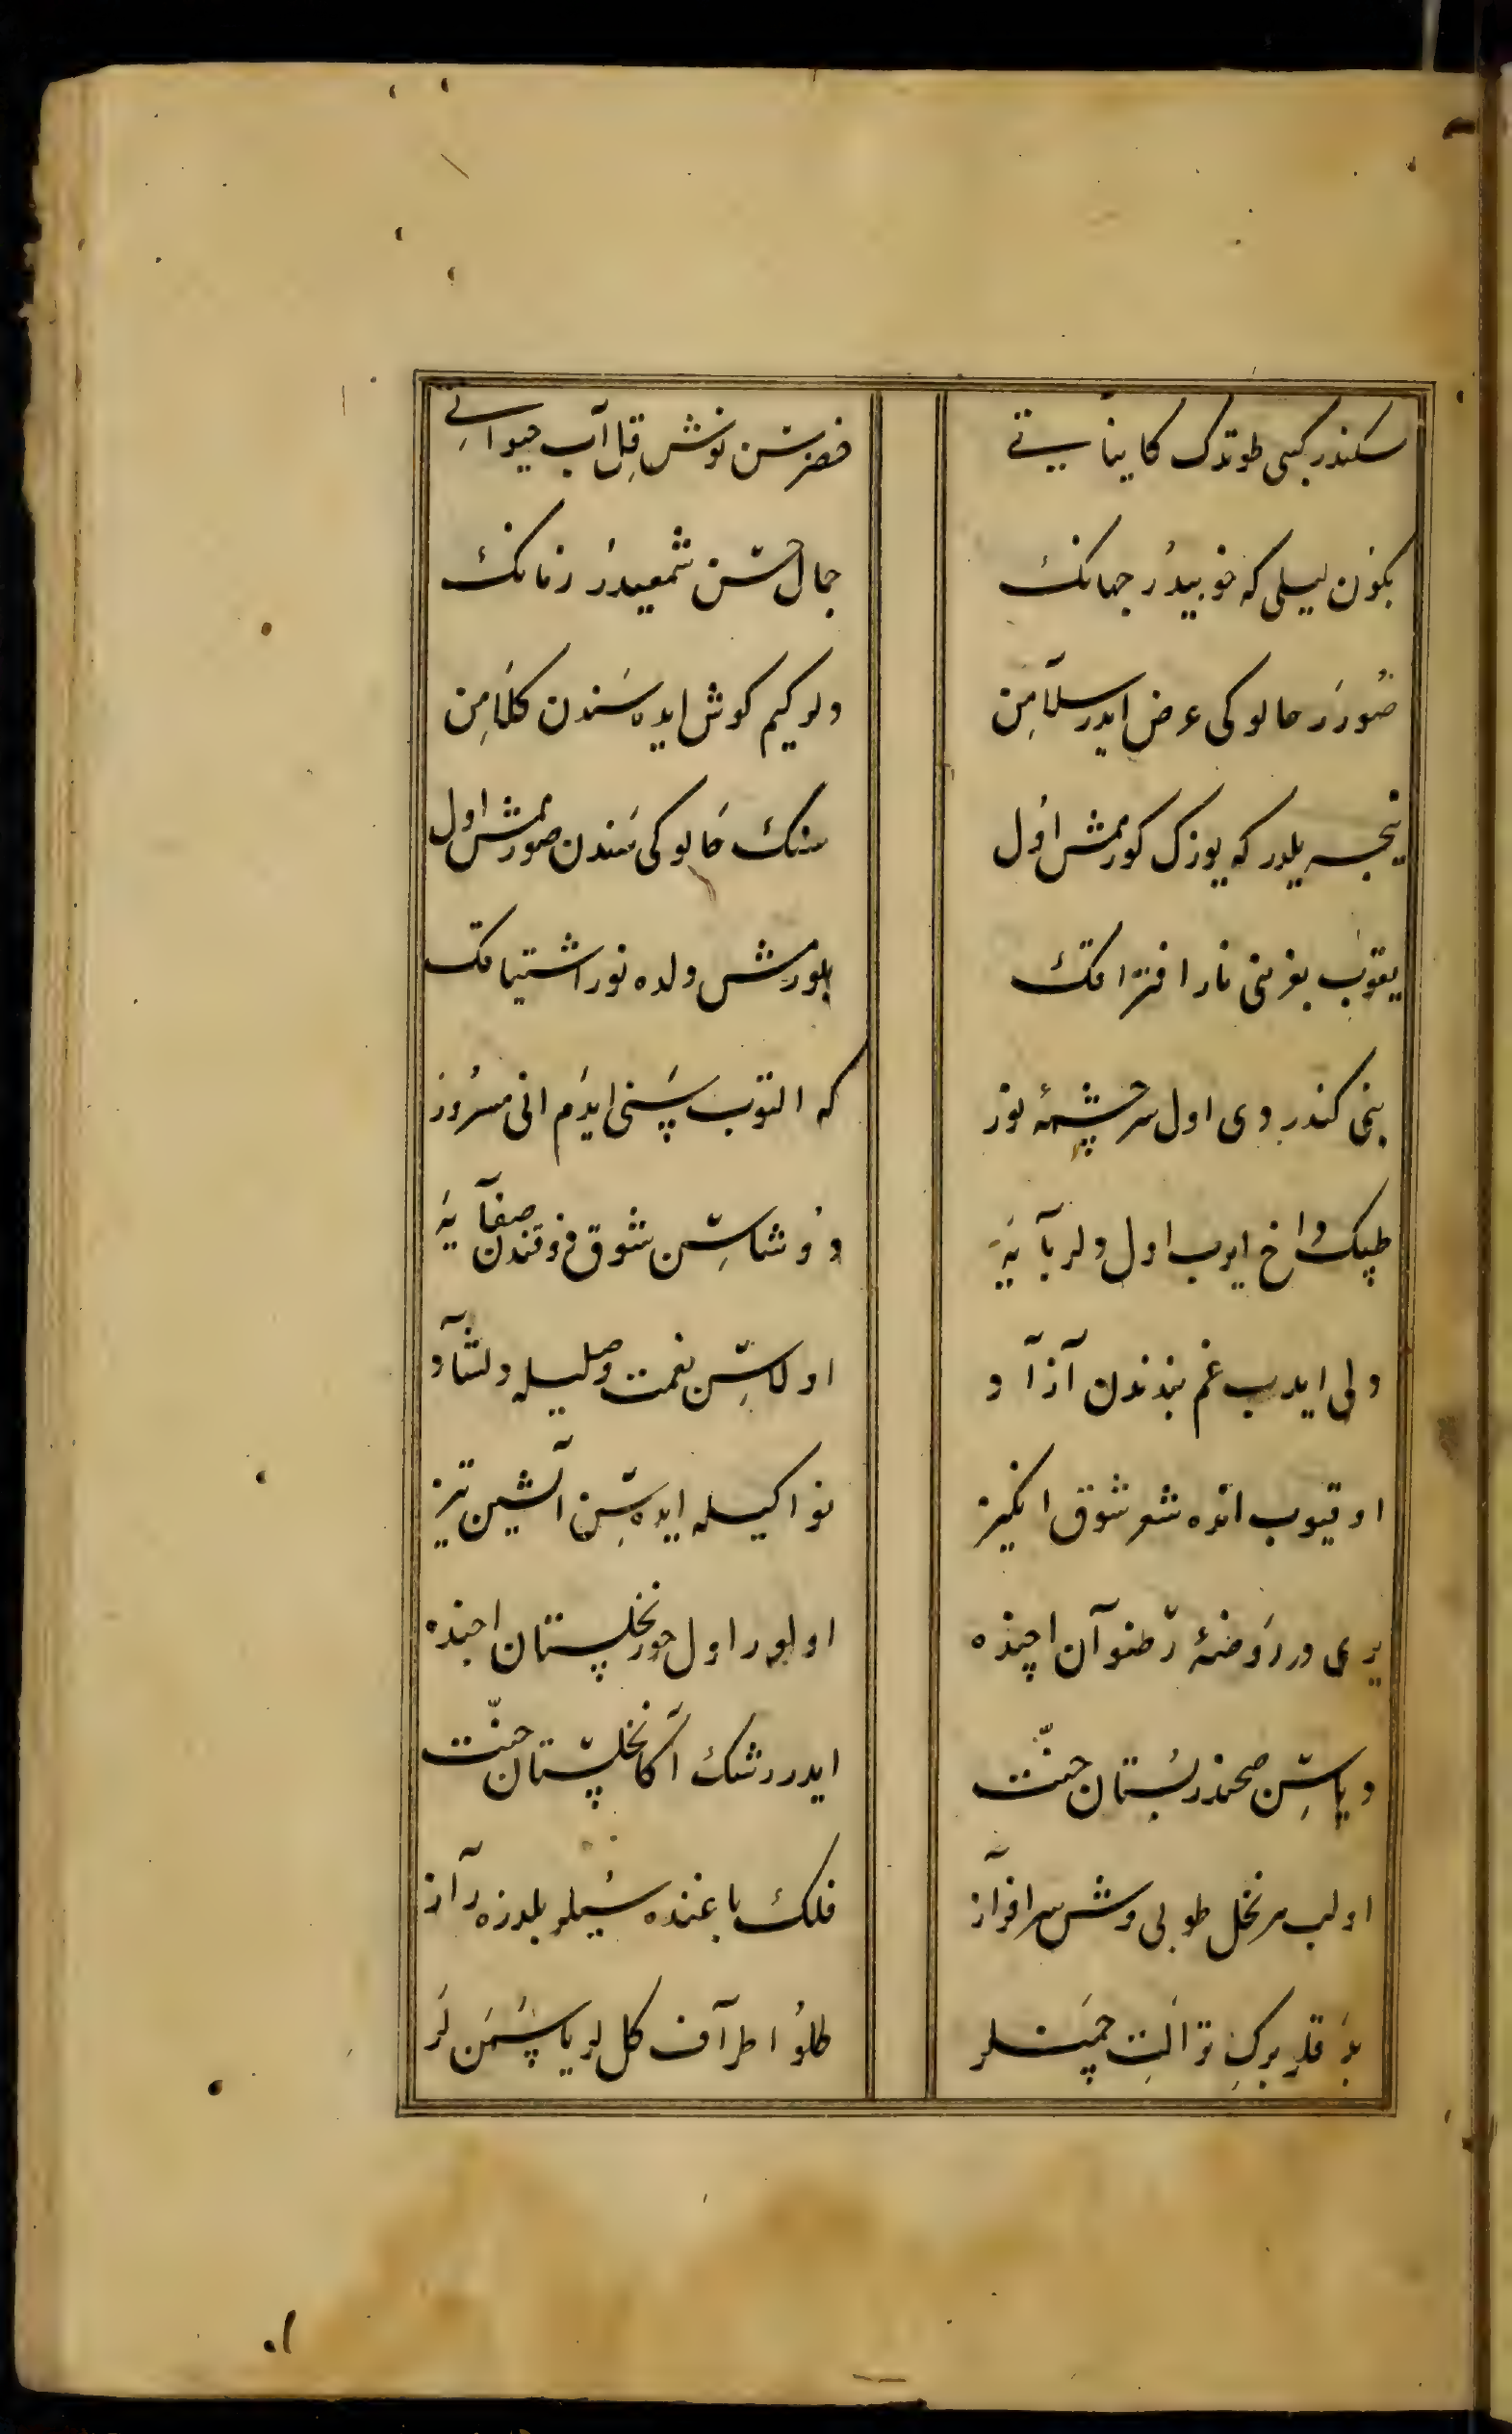 سکندر کبی طوتدک کایناتی خضرسن نوش قل آب حیوانی
بکون لیلی که خوبیدر جهانک جمال حسن شمعیدر زمانک
صورر حالوکی عرض ایدر سلامن ولو کیم کوش ایده سندن کلامن
نیجه یلدر که یوزک کورمش اول سنک حالوکی سندن صورمش اول
یقوب بغرنی نار افتراقک بلورمش دلده نور اشتیاقک
بنی کندردی اول سرچشمهٔ نور که التوب سنی ایدم انی مسرور
طپک واخ ایرب اول دلربایه دوشاسن شوق ذوقندن صفایه
ولی ایدب غم بندندن آزاد اولاسن نعمت وصلیله دلشاد
اوقیوب انده شعر شوق انکیز نواکیله ایده سن آتشین تیز
یری در روضهٔ رضوان ایچنده اولور اول حور نخلستان ایچنده
دیاسن صحندر بستان جنت ایدر رشک آکا نخلستان جنت
اولب هر نخل طوبی وش سرافراز فلک باغنده سیلر یلدزه راز
یز قلر برک تر الت چمنلر طلو اطراف کل لر یاسمن لر